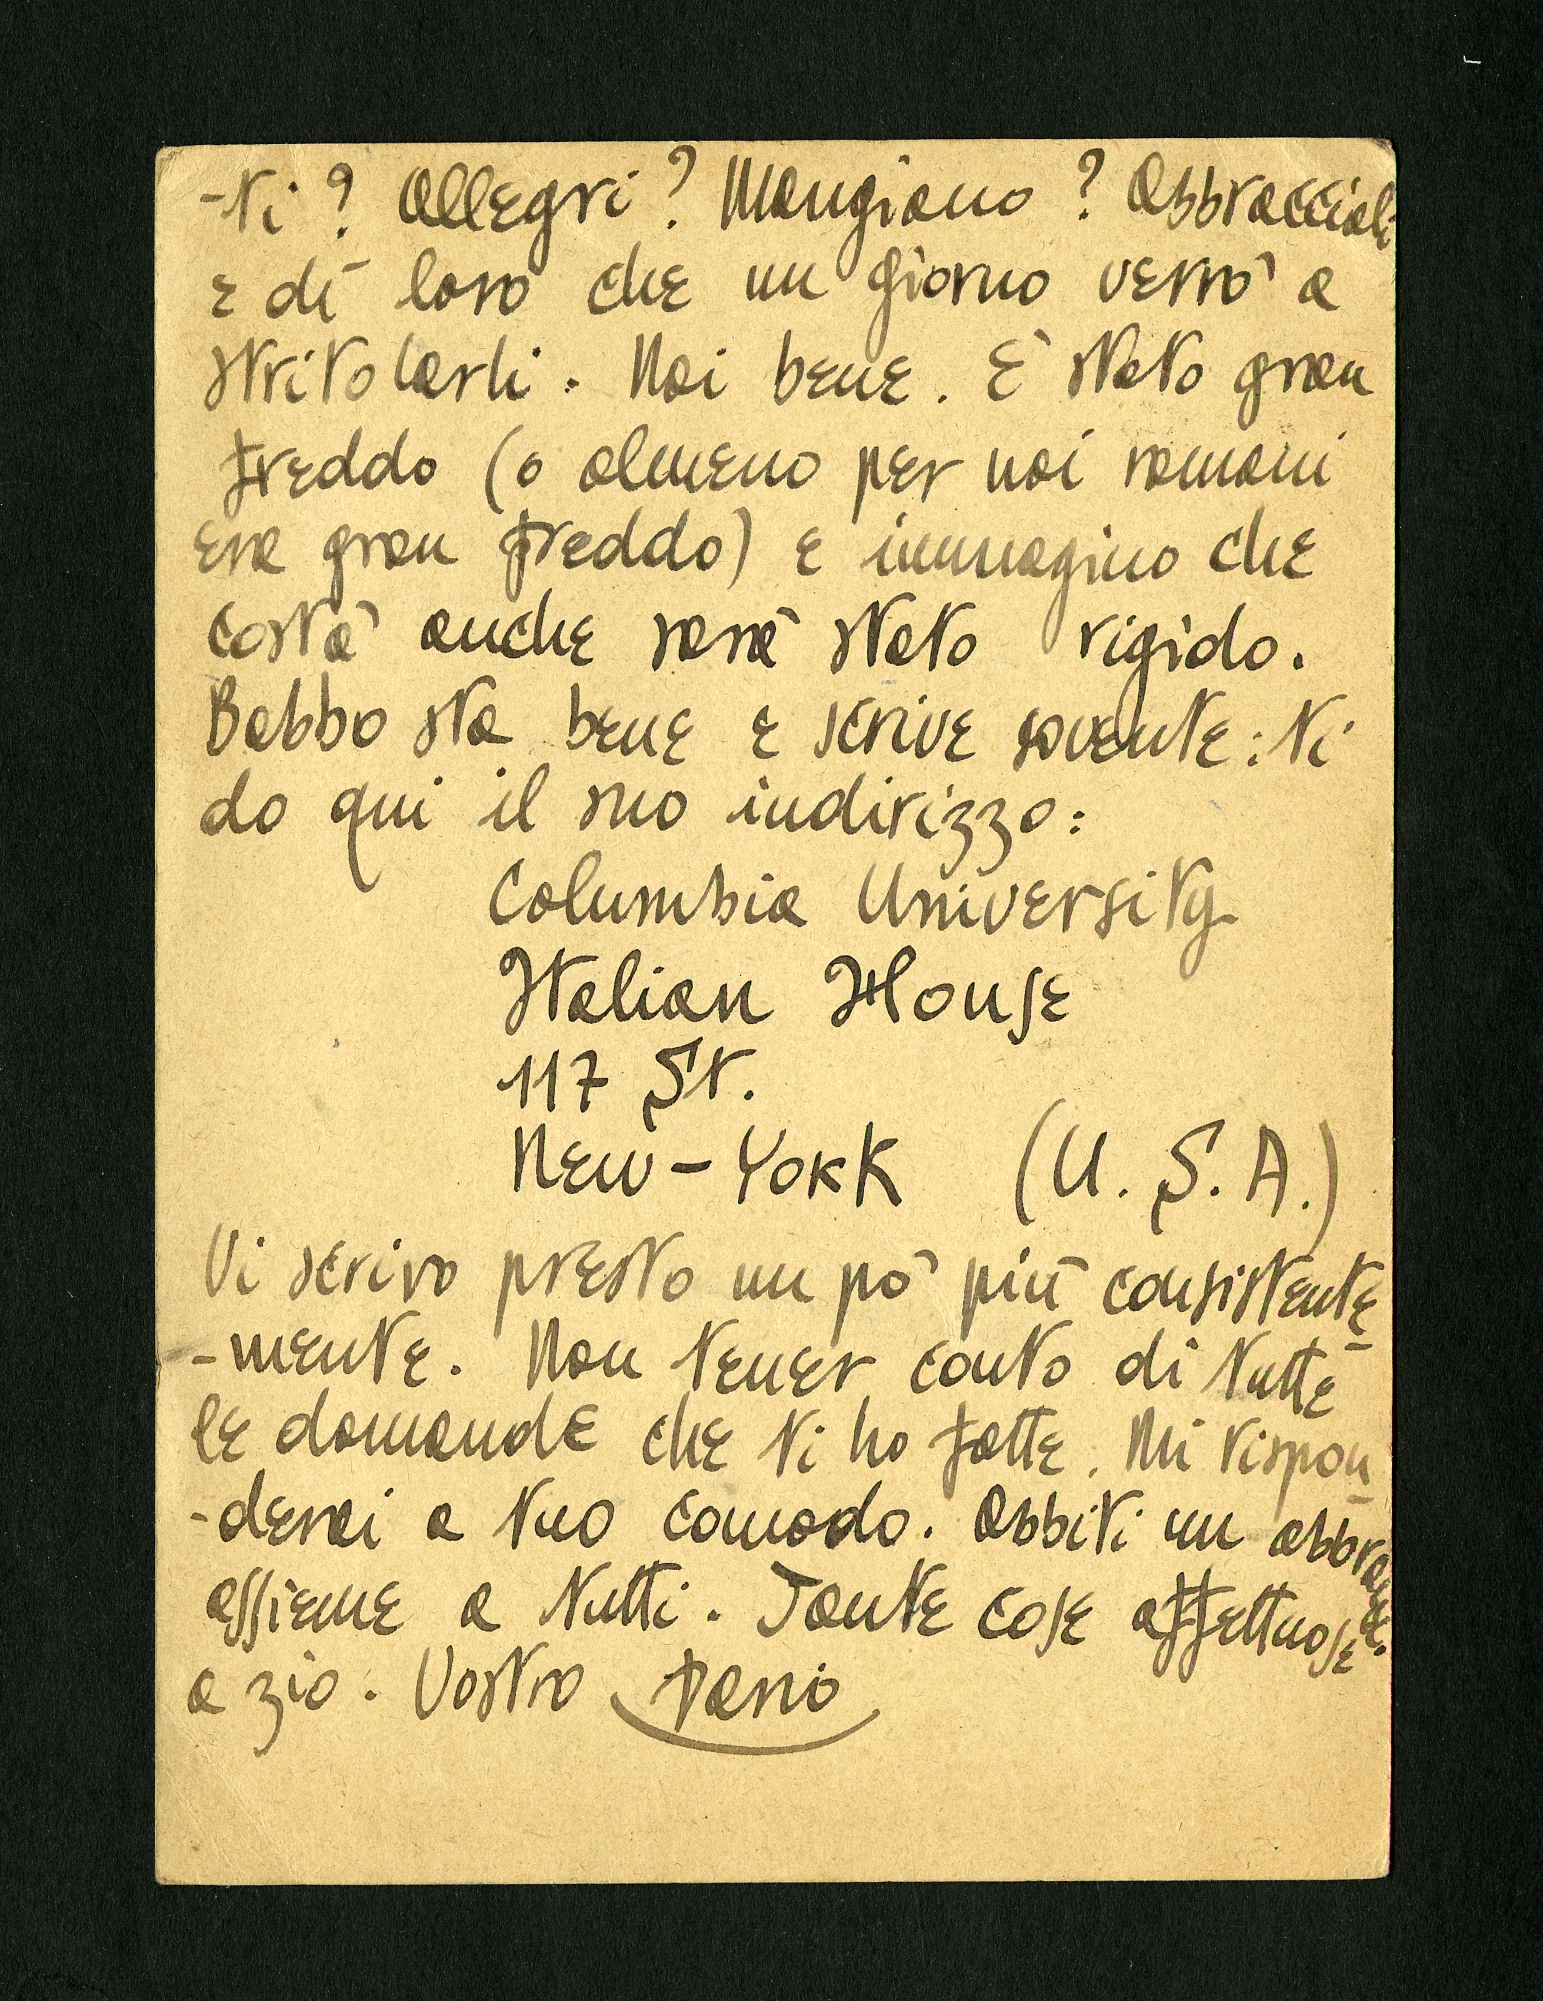 -ti? Allegri? Mangiano? Abbracciali
e dì loro che un giorno verrò a
stritolarli. Noi bene. È stato gran
freddo (o almeno per noi romani
era gran freddo) e immagino che
costà anche sarà stato rigido.
Babbo sta bene e scrive sovente: ti
do qui il suo indirizzo:
Columbia University
Italian House
117 St.
New-York (U.S.A.)
Vi scrivo presto un pò più consistente
-mente. Non tener conto di tutte
le domande che ti ho fatte. Mi rispon
-derai a tuo comodo. Abbiti un abbraccio
assieme a tutti. Tante cose affettuose
a zio. Vostro Dario